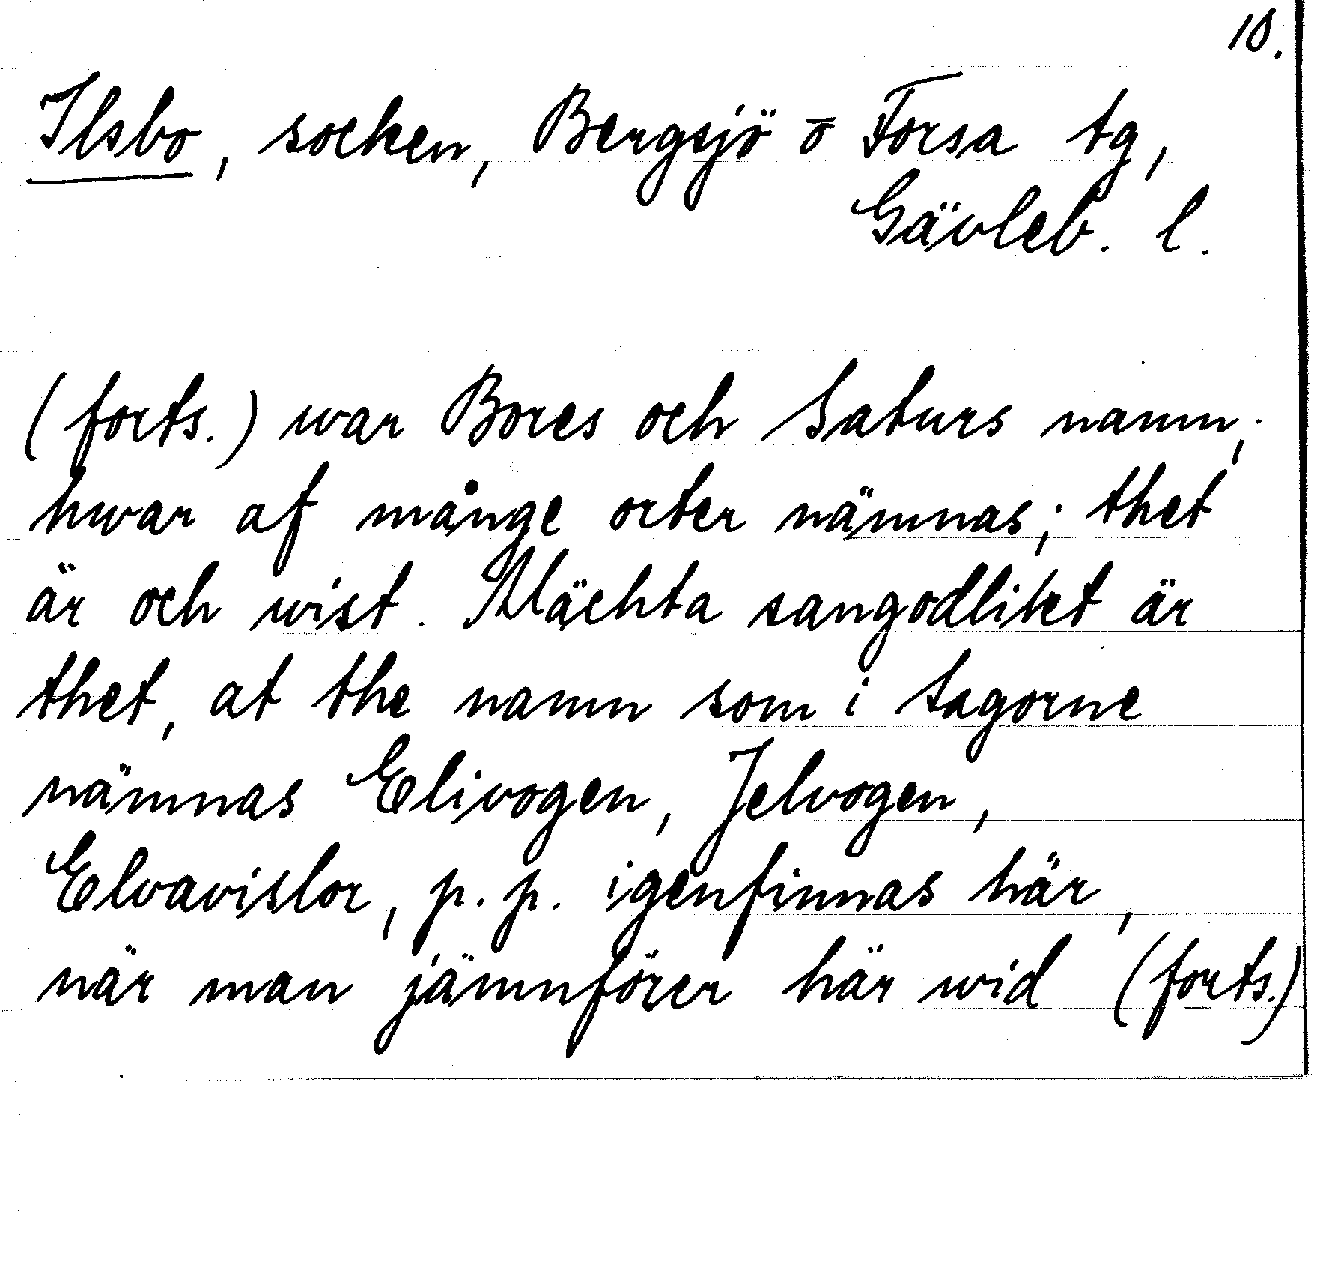 10.
Ilsbo, socken, Bergsjö o Forsa tg,
Gävleb. l.
(forts.) war Bores och Saturs namn,
hwar af månge orter nämnas; thet
är och wist. Mächta sangodlikt är
thet, at the namn som i sagorne
nämnas Elivogen, Jelvogen,
Elvavislor, p.p. igenfinnas här,
när man jämnförer här wid (forts.)